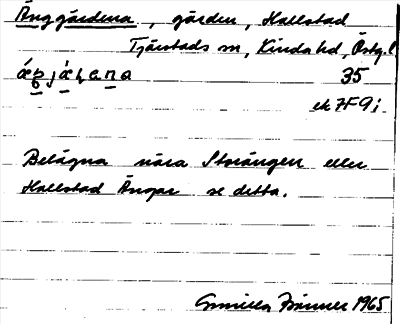 Änggärdena, gärden, Hallstad
Tjärstads sn, Kinda hd, Östg.l.
35
ek 7F9i
Belägna nära Storängen eller
Hallstad Ängar se detta.
Gunilla 1965